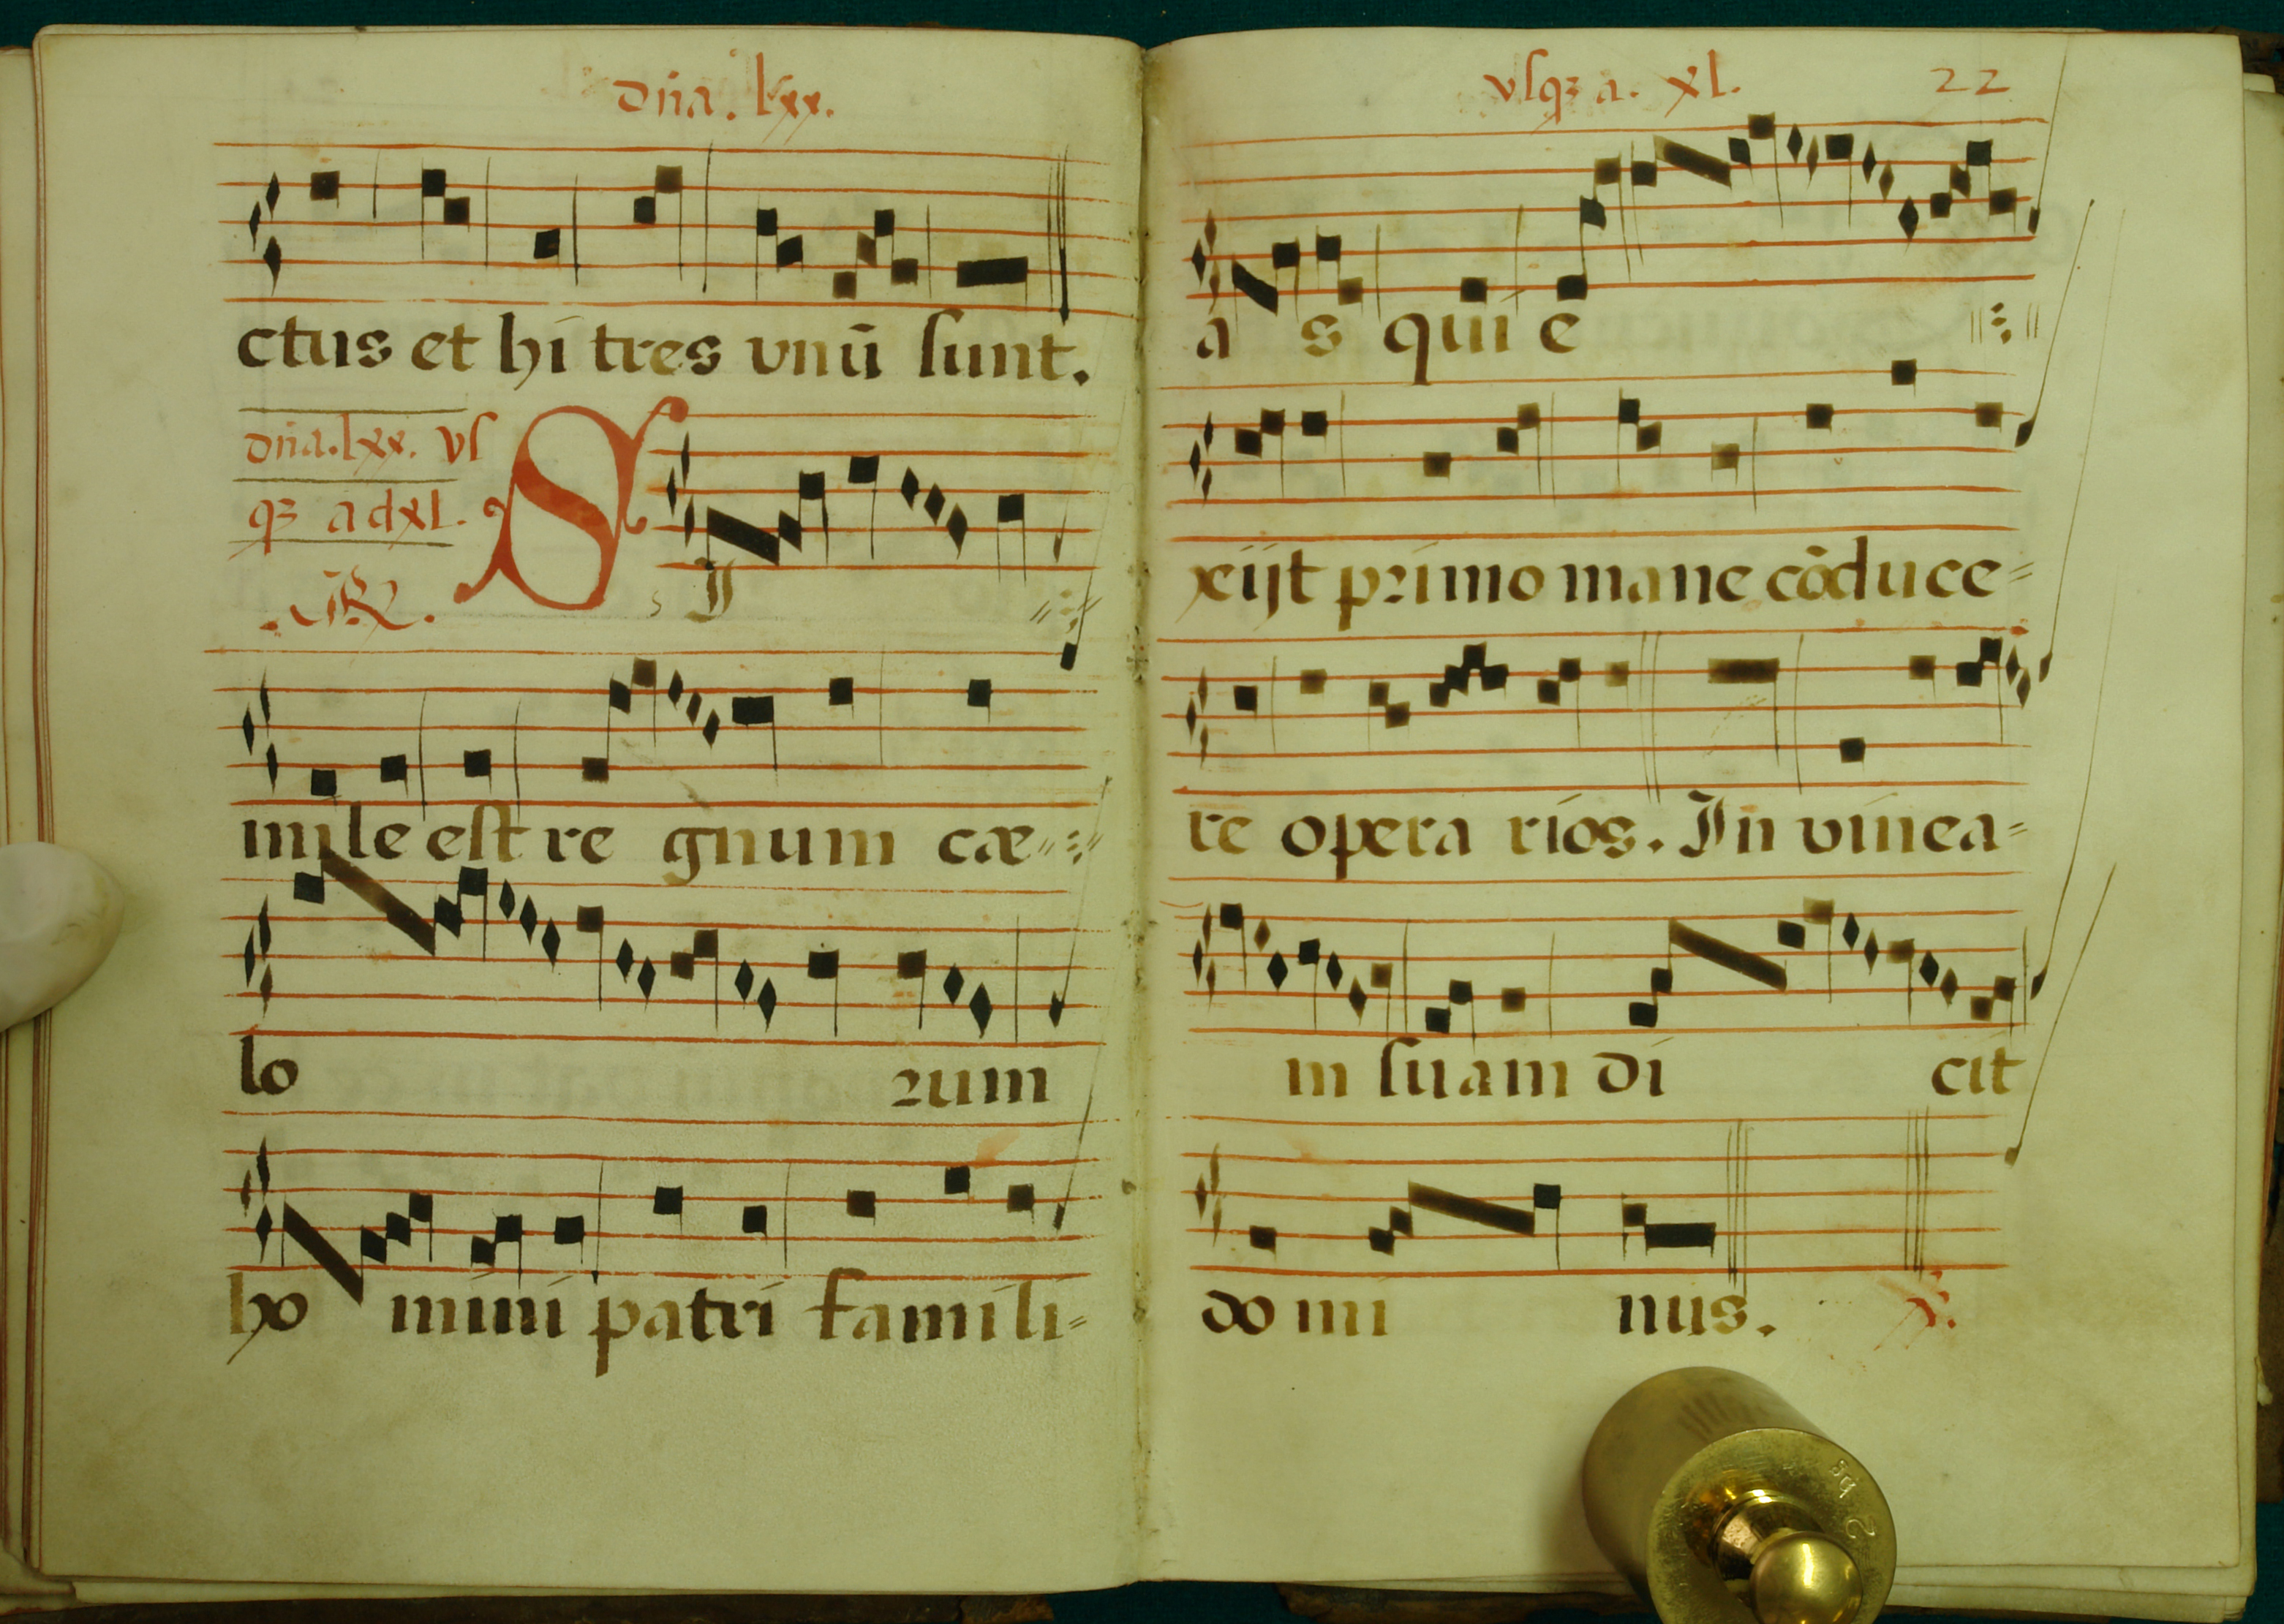 dña. lxx.
ctus et hi tres vnū sunt.
dña. lxx. vſ
qꝫ ad xl.
℟.
S I
mile eſt re gnum cæ
lo ꝛum
ho mini patri famili=
vſqꝫ a. xl. 22
a s qui e
xijt pꝛimo mane cōduce=
re opera rios. In vinea=
m ſuam di cit
do mi nus. ℣.